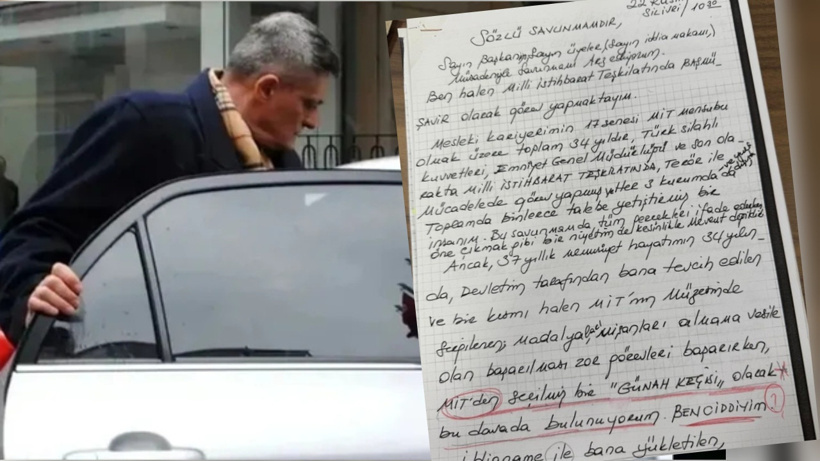 22 Kasım
Silivri / 10³⁰
SÖZLÜ SAVUNMAMDIR,
Sayın Başkan, Sayın üyeler, (Sayın iddia makamı,)
Müsadenizle savunmamı Arz ediyorum.
Ben halen Milli istihbarat Teşkilatında BAŞMÜ-
ŞAVİR olarak görev yapmaktayım.
Mesleki kariyerimin 17 senesi MİT mensubu
olmak üzere toplam 34 yıldır, Türk silahlı
kuvvetleri, Emniyet Genel Müdürlüğü ve son ola
rakta Milli İSTİHBARAT TEŞKİLATINDA, Terör ile
Mücadelede görev yapmış, her 3 kurumda da
Toplamda binlerce talebe yetiştirmiş bir
insanım. Bu savunmamda tüm gerçekleri ifade ederken
öne çıkmak gibi bir niyetim de kesinlikle mevcut değildir.
Ancak, 37 yıllık memuriyet hayatımın 34 yılın-
da, Devletim tarafından bana tevcih edilen
ve bir kısmı halen MİT'nın Müzesinde
sergilenen; madalyaları, nişanları almama vesile
olan başarılması zor görevleri başarırken,
MİT'den seçilmiş bir "GÜNAH KEÇİSİ" olarak
bu davada bulunuyorum. BEN CİDDİYİM
iddianame ile bana yükletilen,